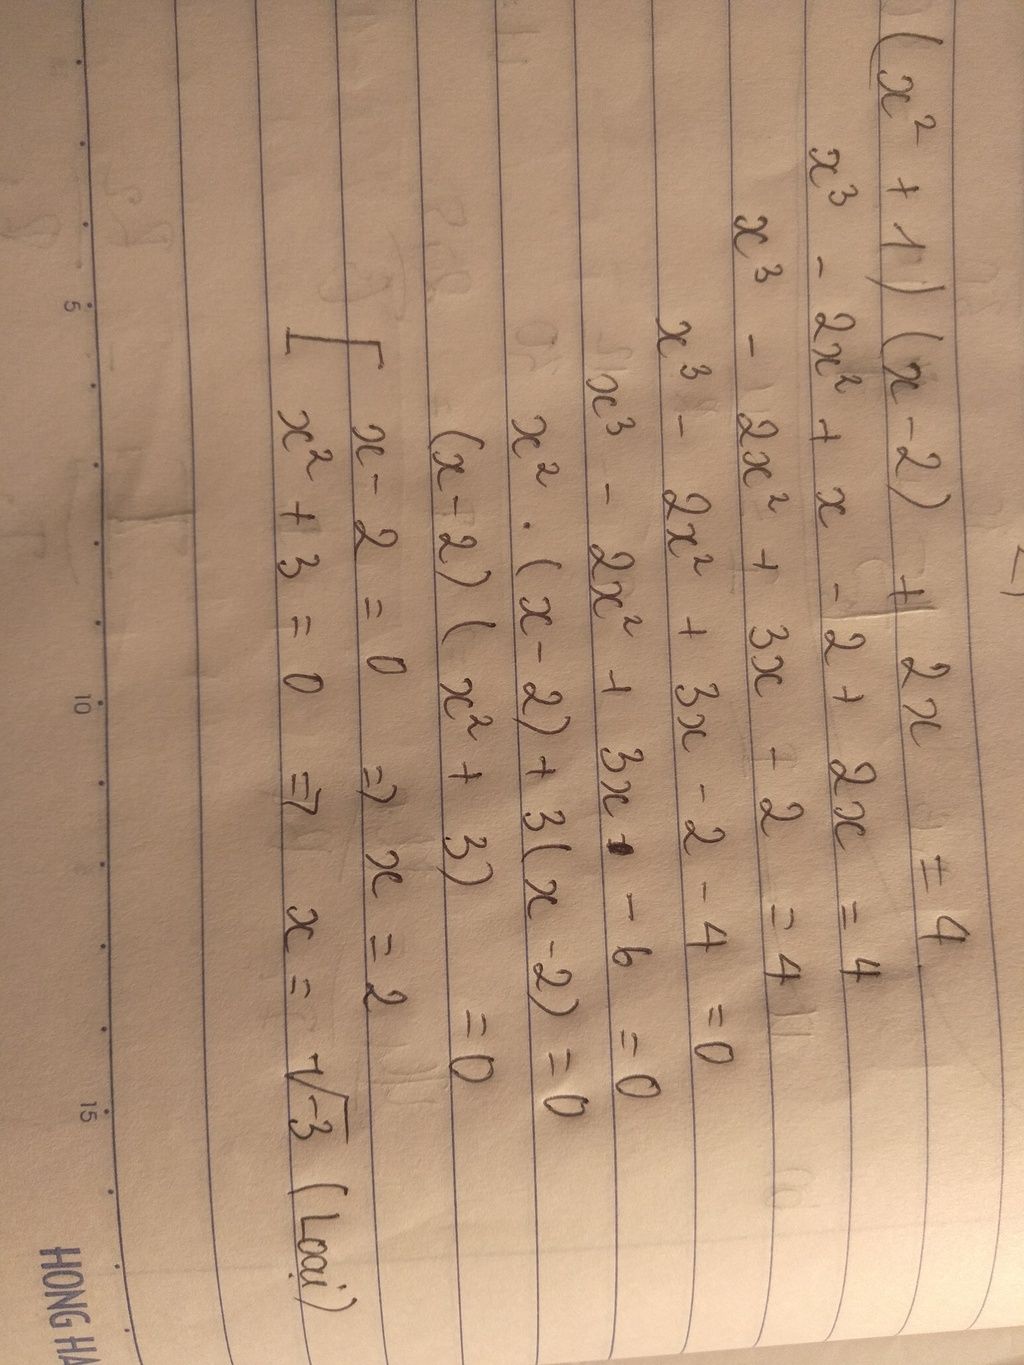 (x² + 1)(x - 2) + 2x = 4
x³ - 2x² + x - 2 + 2x = 4
x³ - 2x² + 3x - 2 = 4
x³ - 2x² + 3x - 2 - 4 = 0
x³ - 2x² + 3x - 6 = 0
x² . (x - 2) + 3(x - 2) = 0
(x - 2)(x² + 3) = 0
[ x - 2 = 0 => x = 2
x² + 3 = 0 => x = √-3 (Loại)
5 10 15
HONG HA